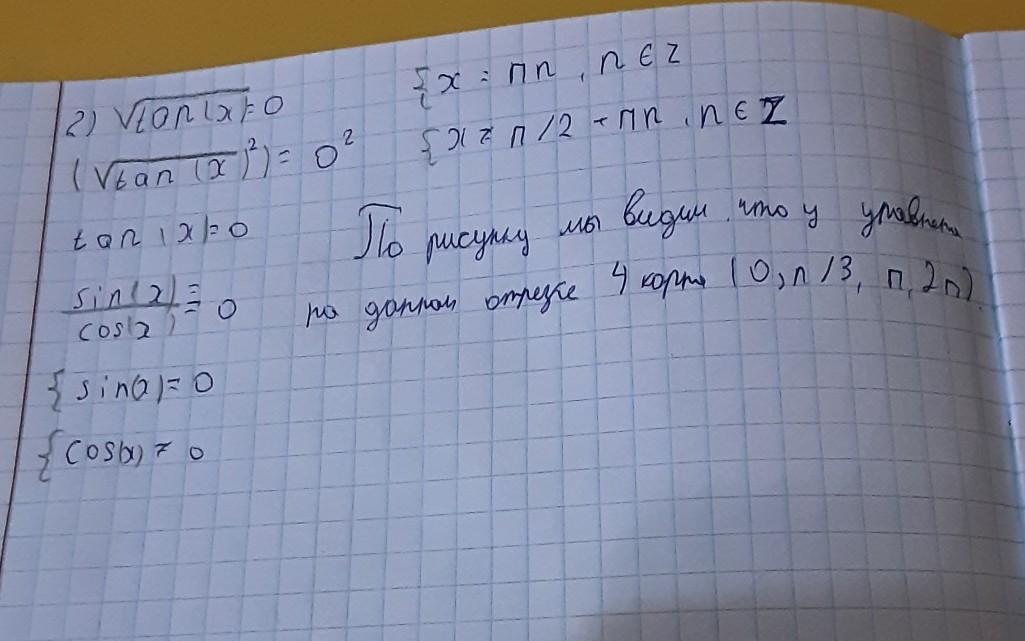 2) √tan(x)=0
(√tan(x)²)=0²
tan(x)=0
sin(x)/cos(x)=0
{sin(x)=0
{cos(x)≠0
{x=πn, n∈Z
{x≠π/2+πn, n∈Z
По рисунку мы видим, что у уравнения
на данном отрезке 4 корня (0, π/3, π, 2π)